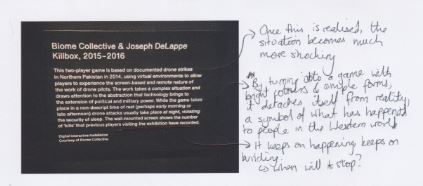 Biome Collective & Joseph DeLappe
Killbox, 2015-2016
This two-player game is based on documented drone strikes
in Northern Pakistan in 2014, using virtual environments to allow
players to experience the screen-based and remote nature of
the work of drone pilots. The work takes a complex situation and
draws attention to the abstraction that technology brings to
the extension of political and military power. While the game takes
place in a non-descript time of rest (perhaps early morning or
late afternoon) drone attacks usually take place at night, violating
the security of sleep. The wall-mounted screen shows the number
of 'kills' that previous players visiting the exhibition have recorded.
Digital interactive installation
Courtesy of Biome Collective
Once this is realised, the
situation becomes much
more shocking
By turning into a game with
bright colours & simple forms,
it detaches itself from reality,
a symbol of what has happened
to people in the Western world
It keeps on happening keeps on
building.
When will it stop?